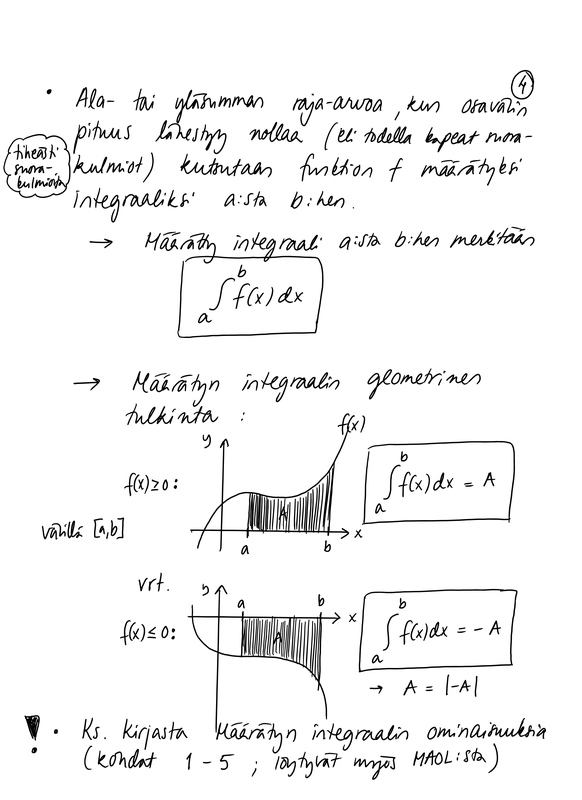 4
• Ala- tai yläsumman raja-arvoa, kun osavälin
pituus lähestyy nollaa (eli todella kapeat suora-
kulmiot) kutsutaan funktion f määrätyksi
integraaliksi a:sta b:hen.
tiheästi
suora-
kulmioita
→ Määrätty integraali a:sta b:hen merkitään
∫_a^b f(x) dx
→ Määrätyn integraalin geometrinen
tulkinta :
f(x) ≥ 0 :
välillä [a,b]
y
f(x)
A
a b x
∫_a^b f(x) dx = A
vrt.
f(x) ≤ 0 :
y
a b x
A
∫_a^b f(x) dx = - A
→ A = |-A|
! • Ks. kirjasta Määrätyn integraalin ominaisuuksia
(kohdat 1 - 5 ; löytyvät myös MAOL:sta)